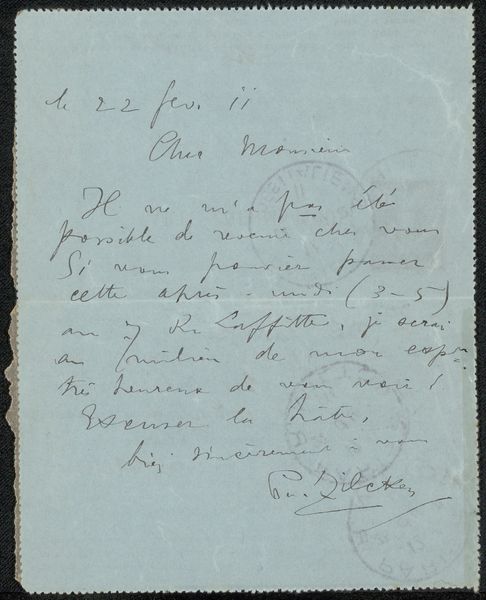 le 22 fev. 11
Cher Monsieur
Il ne m'a pas été
possible de revenir chez vous
Si vous pouviez passer
cette après-midi (3-5)
au 7 R. Laffitte, je serai
au milieu de mon expon.
très heureux de vous voir!
Excusez la hâte,
bien sincèrement à vous
Ph. Zilcken